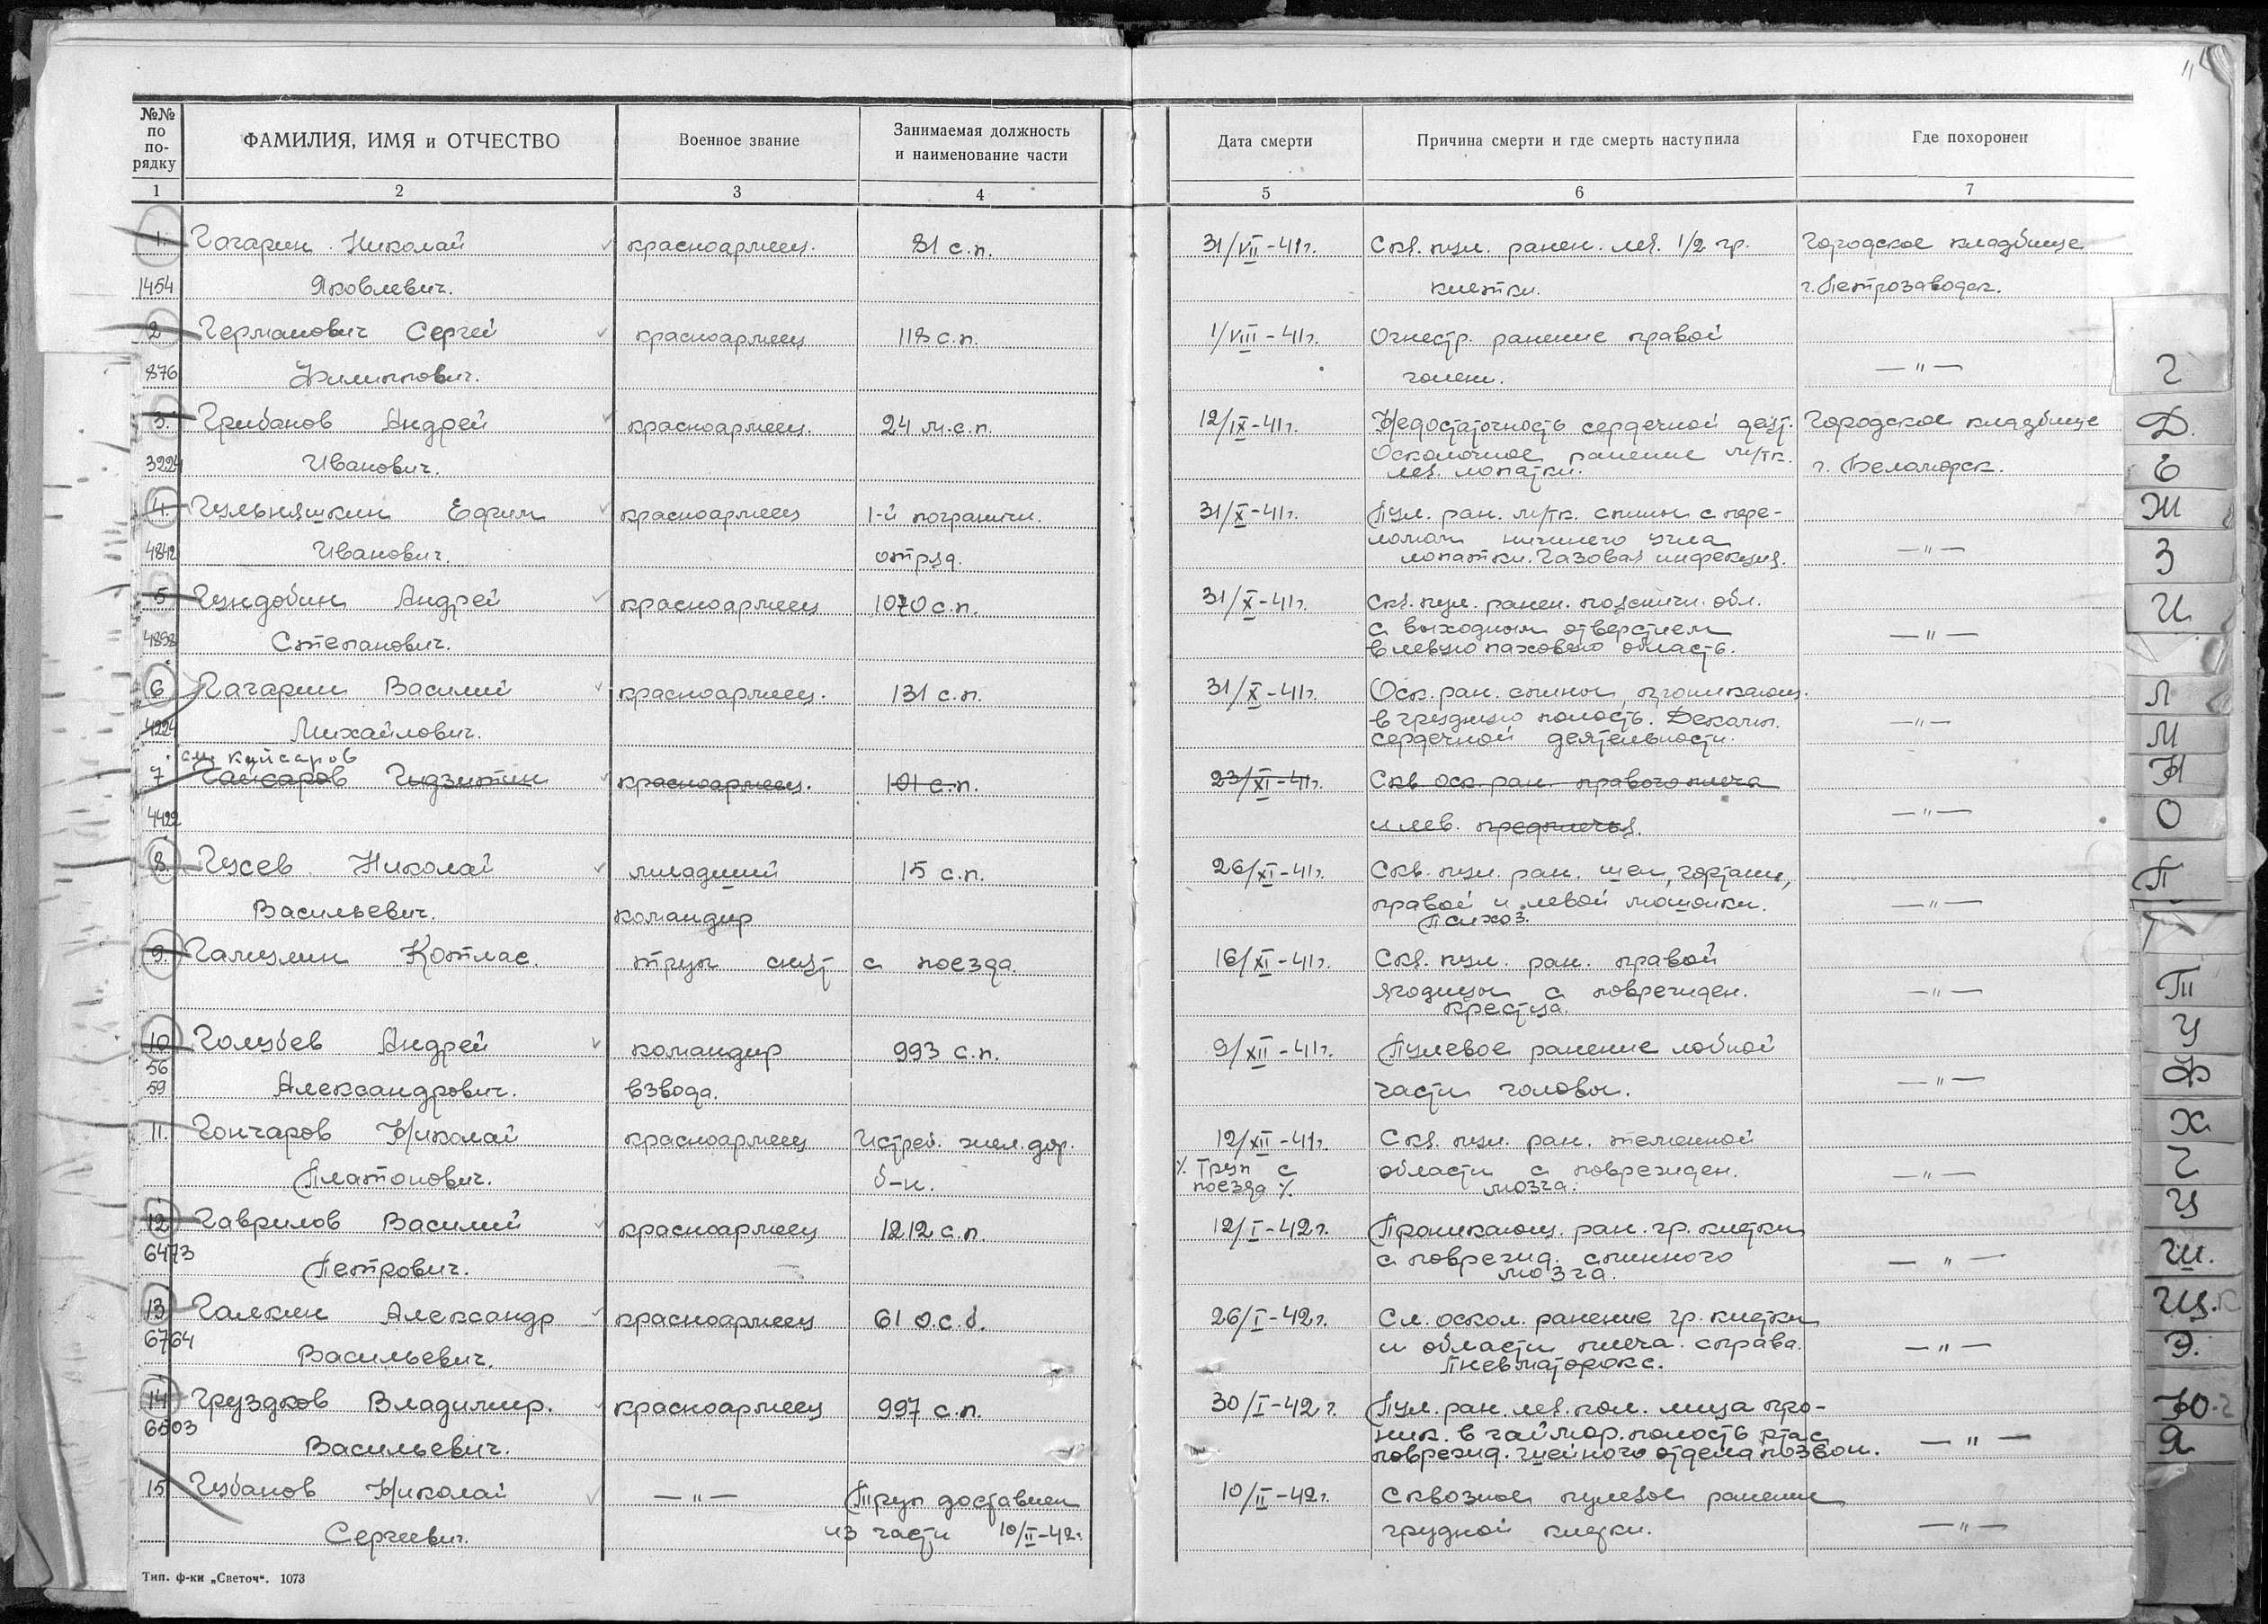 11
№№ по по- рядку | ФАМИЛИЯ, ИМЯ и ОТЧЕСТВО | Военное звание | Занимаемая должность и наименование части | Дата смерти | Причина смерти и где смерть наступила | Где похоронен
1 | 2 | 3 | 4 | 5 | 6 | 7
1. Гагарин Николай красноармеец. 81 с.п. 31/VII-41г. Скв. пул. ранен. лев. 1/2 гр. Городское кладбище
1454 Яковлевич. клетки. г. Петрозаводск.
2 Германович Сергей красноармеец 118 с.п. 1/VIII-41г. Огнестр. ранение правой
876 Филиппович. голени. —"—
3. Грибанов Андрей красноармеец. 24 м.с.п. 12/IX-41г. Недостаточность сердечной деят. Городское кладбище
3224 Иванович. Осколочное ранение м/тк. г. Беломорск.
лев. лопатки.
4. Гульняшкин Ефим красноармеец 1-й погранич. 31/X-41г. Пул. ран. м/тк. спины с пере-
ломом нижнего угла
4842 Иванович. отряд. лопатки. Газовая инфекция. —"—
5 Гундобин Андрей красноармеец 1070 с.п. 31/X-41г. Скв. пул. ранен. пояснич. обл.
с выходным отверстием
4898 Степанович. в левую паховую область. —"—
6 Гагарин Василий красноармеец. 131 с.п. 31/X-41г. Оск. ран. спины, проникающ.
в грудную полость. Декомп.
4224 Михайлович. сердечной деятельности. —"—
см. Кайсаров
7 Гайсаров Гидзитин красноармеец. 101 с.п. 23/XI-41г. Скв. оск. ран. правого плеча
4422 и лев. предплечья. —"—
8. Гусев Николай младший 15 с.п. 26/XI-41г. Скв. пул. ран. шеи, гортани,
Васильевич. командир правой и левой мошонки. —"—
Психоз.
9. Галиулин Котлас. труп снят с поезда. 16/XI-41г. Скв. пул. ран. правой
ягодицы с поврежден. —"—
крестца.
10 Голубев Андрей командир 993 с.п. 9/XII-41г. Пулевое ранение лобной
56
59 Александрович. взвода. части головы. —"—
11. Гончаров Николай красноармеец Истреб. жел. дор. 12/XII-41г. Скв. пул. ран. теменной
Платонович. б-н. ٪ Труп с области с поврежден. —"—
поезда ٪ мозга.
12 Гаврилов Василий красноармеец 1212 с.п. 12/I-42г. Проникающ. ран. гр. клетки
6473 с поврежд. спинного — "  —
Петрович. мозга.
13 Галкин Александр красноармеец 61 о.с.б. 26/I-42г. Сл. оскол. ранение гр. клетки
6764 и области плеча справа. —"—
Васильевич. Пневматоракс.
14 Груздков Владимир. красноармеец 997 с.п. 30/I-42г. Пул. ран. лев. пол. лица про-
6503 ник. в гаймор. полость рта с
Васильевич. поврежд. шейного отдела позвон. —"—
15 Губанов Николай —"— Труп доставлен 10/II-42г. Сквозное пулевое ранение
Сергеевич. из части 10/II-42г. грудной клетки. —"—
Тип. ф-ки „Светоч“. 1073
Г
Д.
Е
Ж
З
И
Л
М
Н
О
П
Т
У
Ф
Х
Ч
Ц
Ш.
Щ.
Э.
Ю
Я